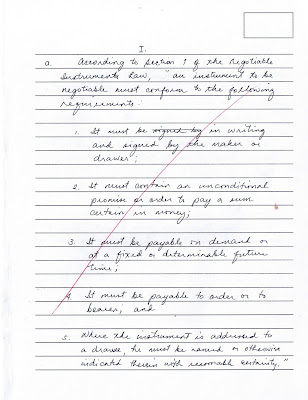 I.
a. According to Section 1 of the Negotiable
Instruments Law, "an instrument to be
negotiable must conform to the following
requirements:
1. It must be signed by in writing
and signed by the maker or
drawer;
2. It must contain an unconditional
promise or order to pay a sum
certain in money;
3. It must be payable on demand or
at a fixed or determinable future
time;
4. It must be payable to order or to
bearer; and
5. Where the instrument is addressed to
a drawee, he must be named or otherwise
indicated therein with reasonable certainty."